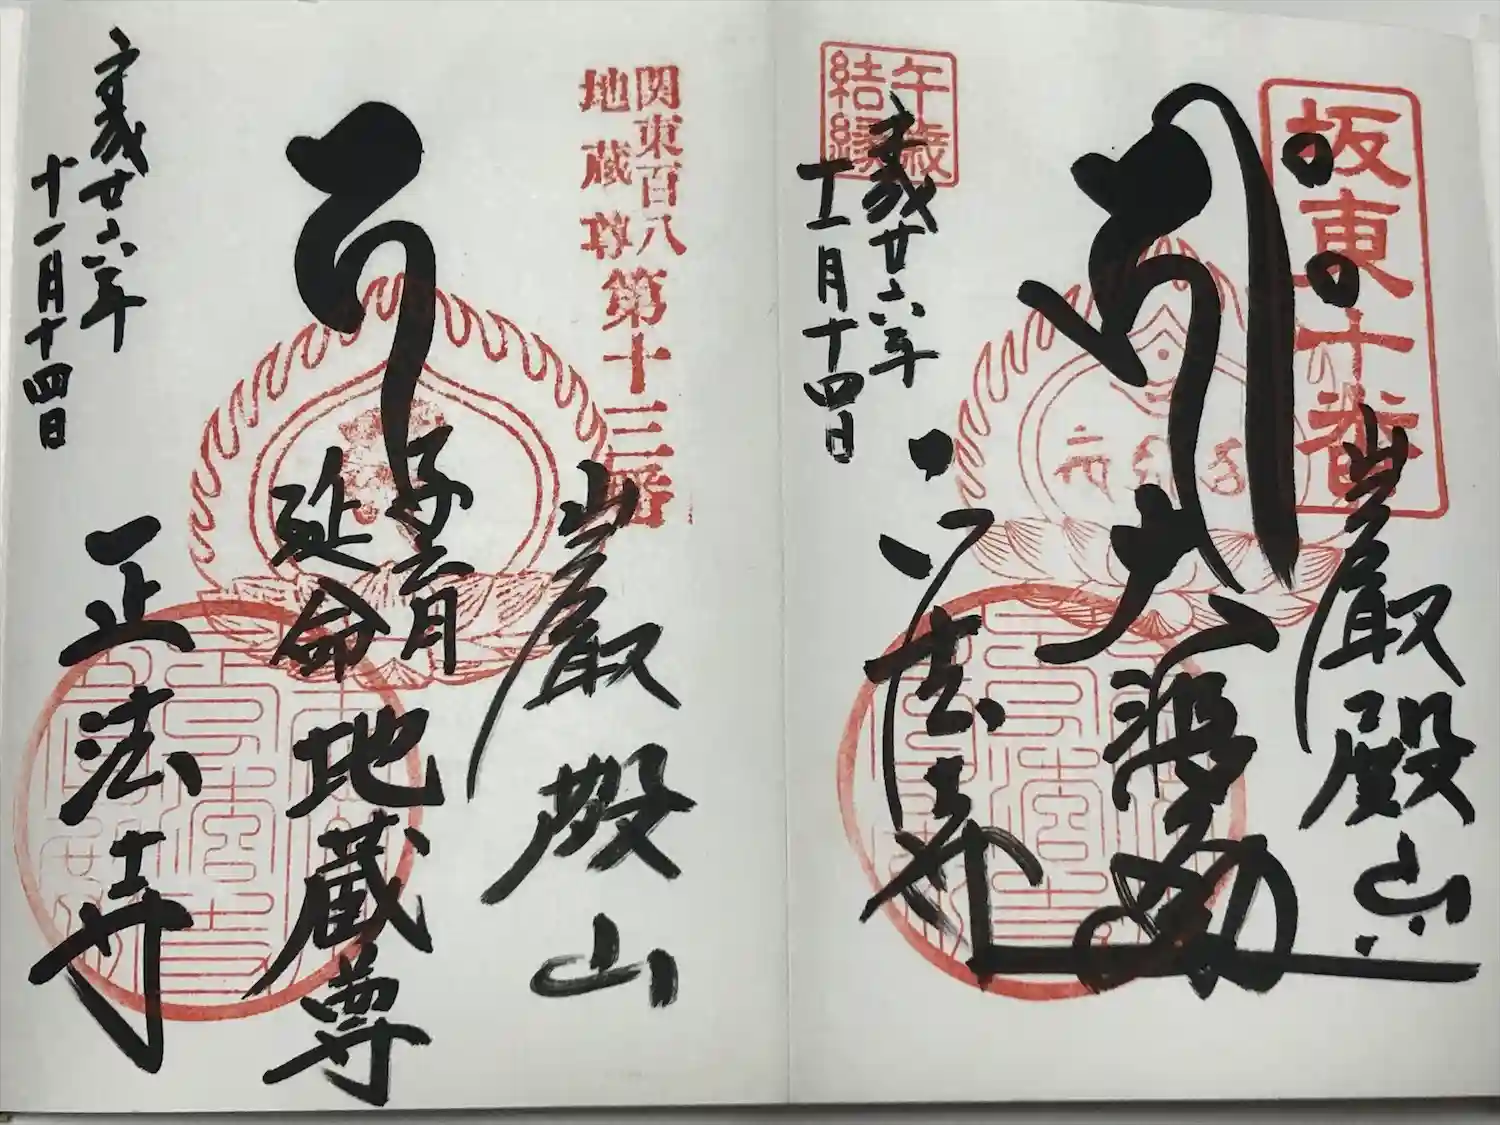 坂東十番
巌殿山
大悲閣
正法寺
午歳
結縁
平成廿六年
十一月十四日
関東百八
地蔵尊
第十三番
巌殿山
子育
延命
地蔵尊
正法寺
平成廿六年
十一月十四日